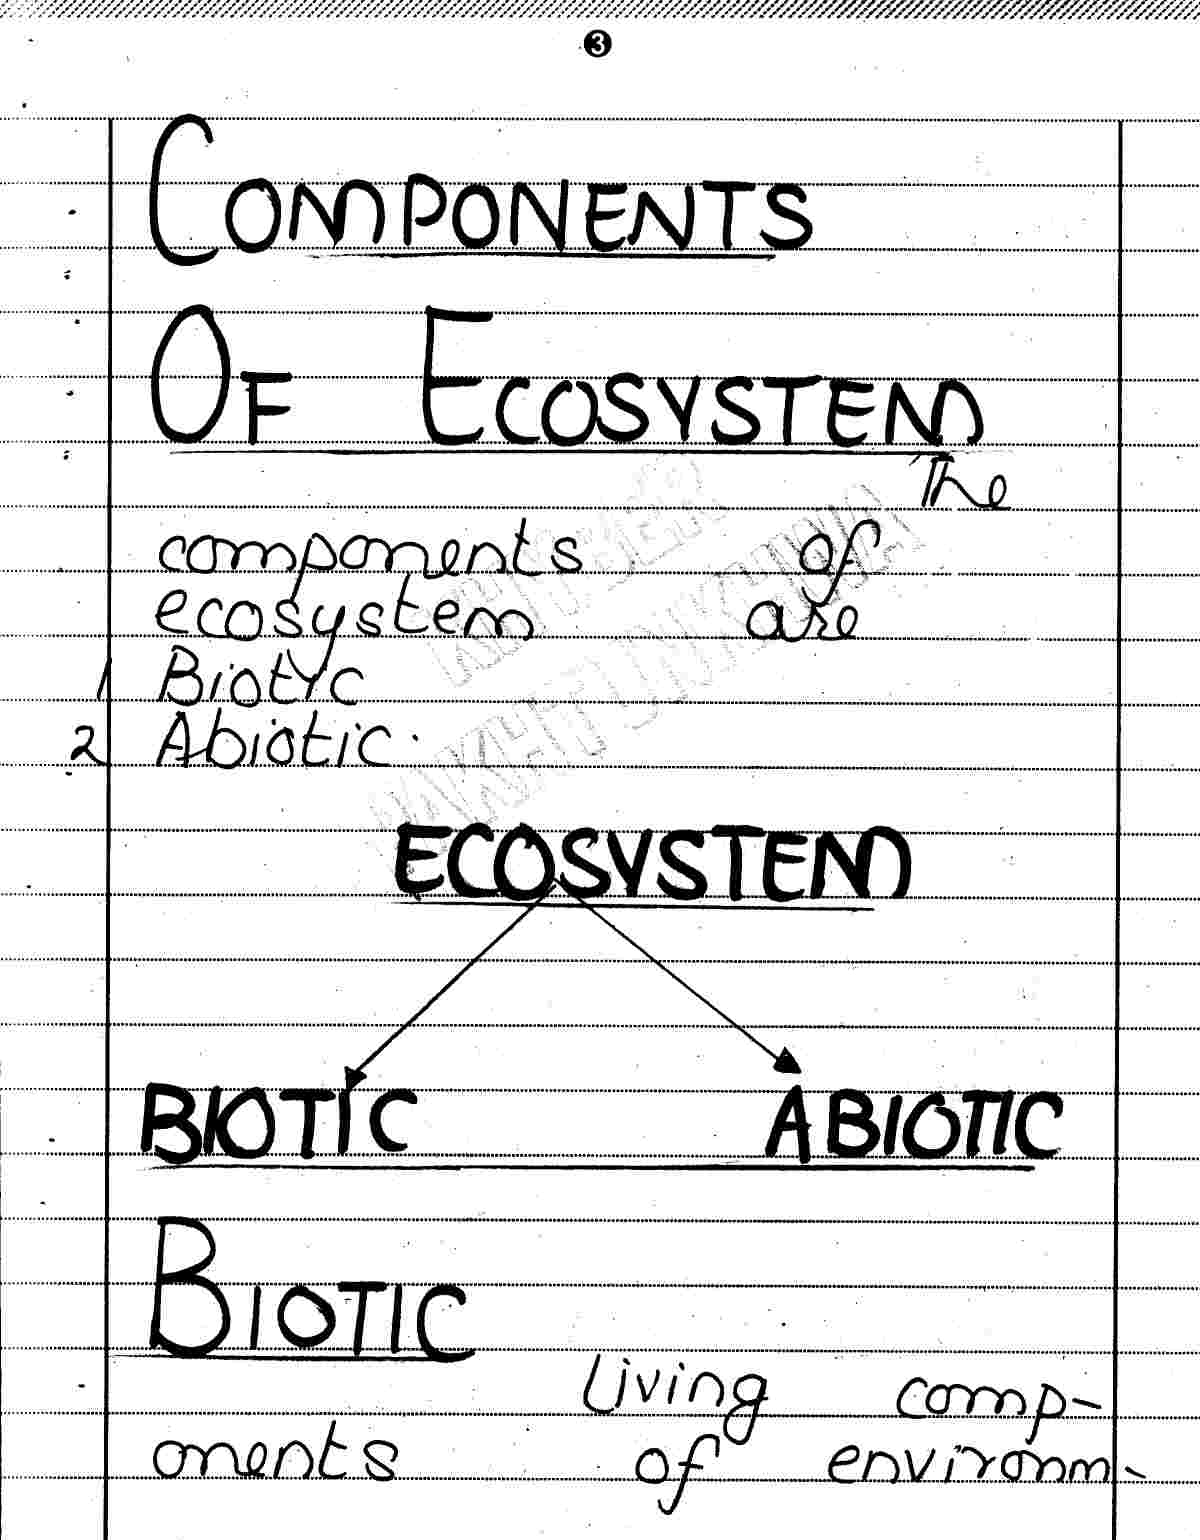 3
COMPONENTS
OF ECOSYSTEM
The
components of
ecosystem are
1 Biotic
2 Abiotic.
KHYBER
PAKHTUNKHWA
ECOSYSTEM
BIOTIC ABIOTIC
BIOTIC
Living comp-
onents of environm-